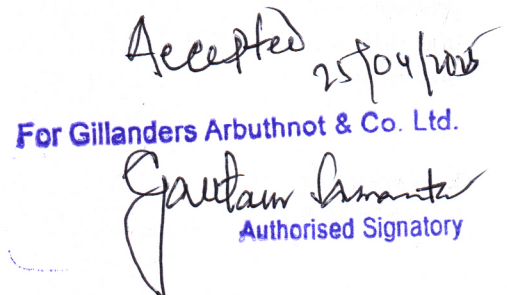 Accepted
25/04/2025
For Gillanders Arbuthnot & Co. Ltd.
Gautam Samanta
Authorised Signatory